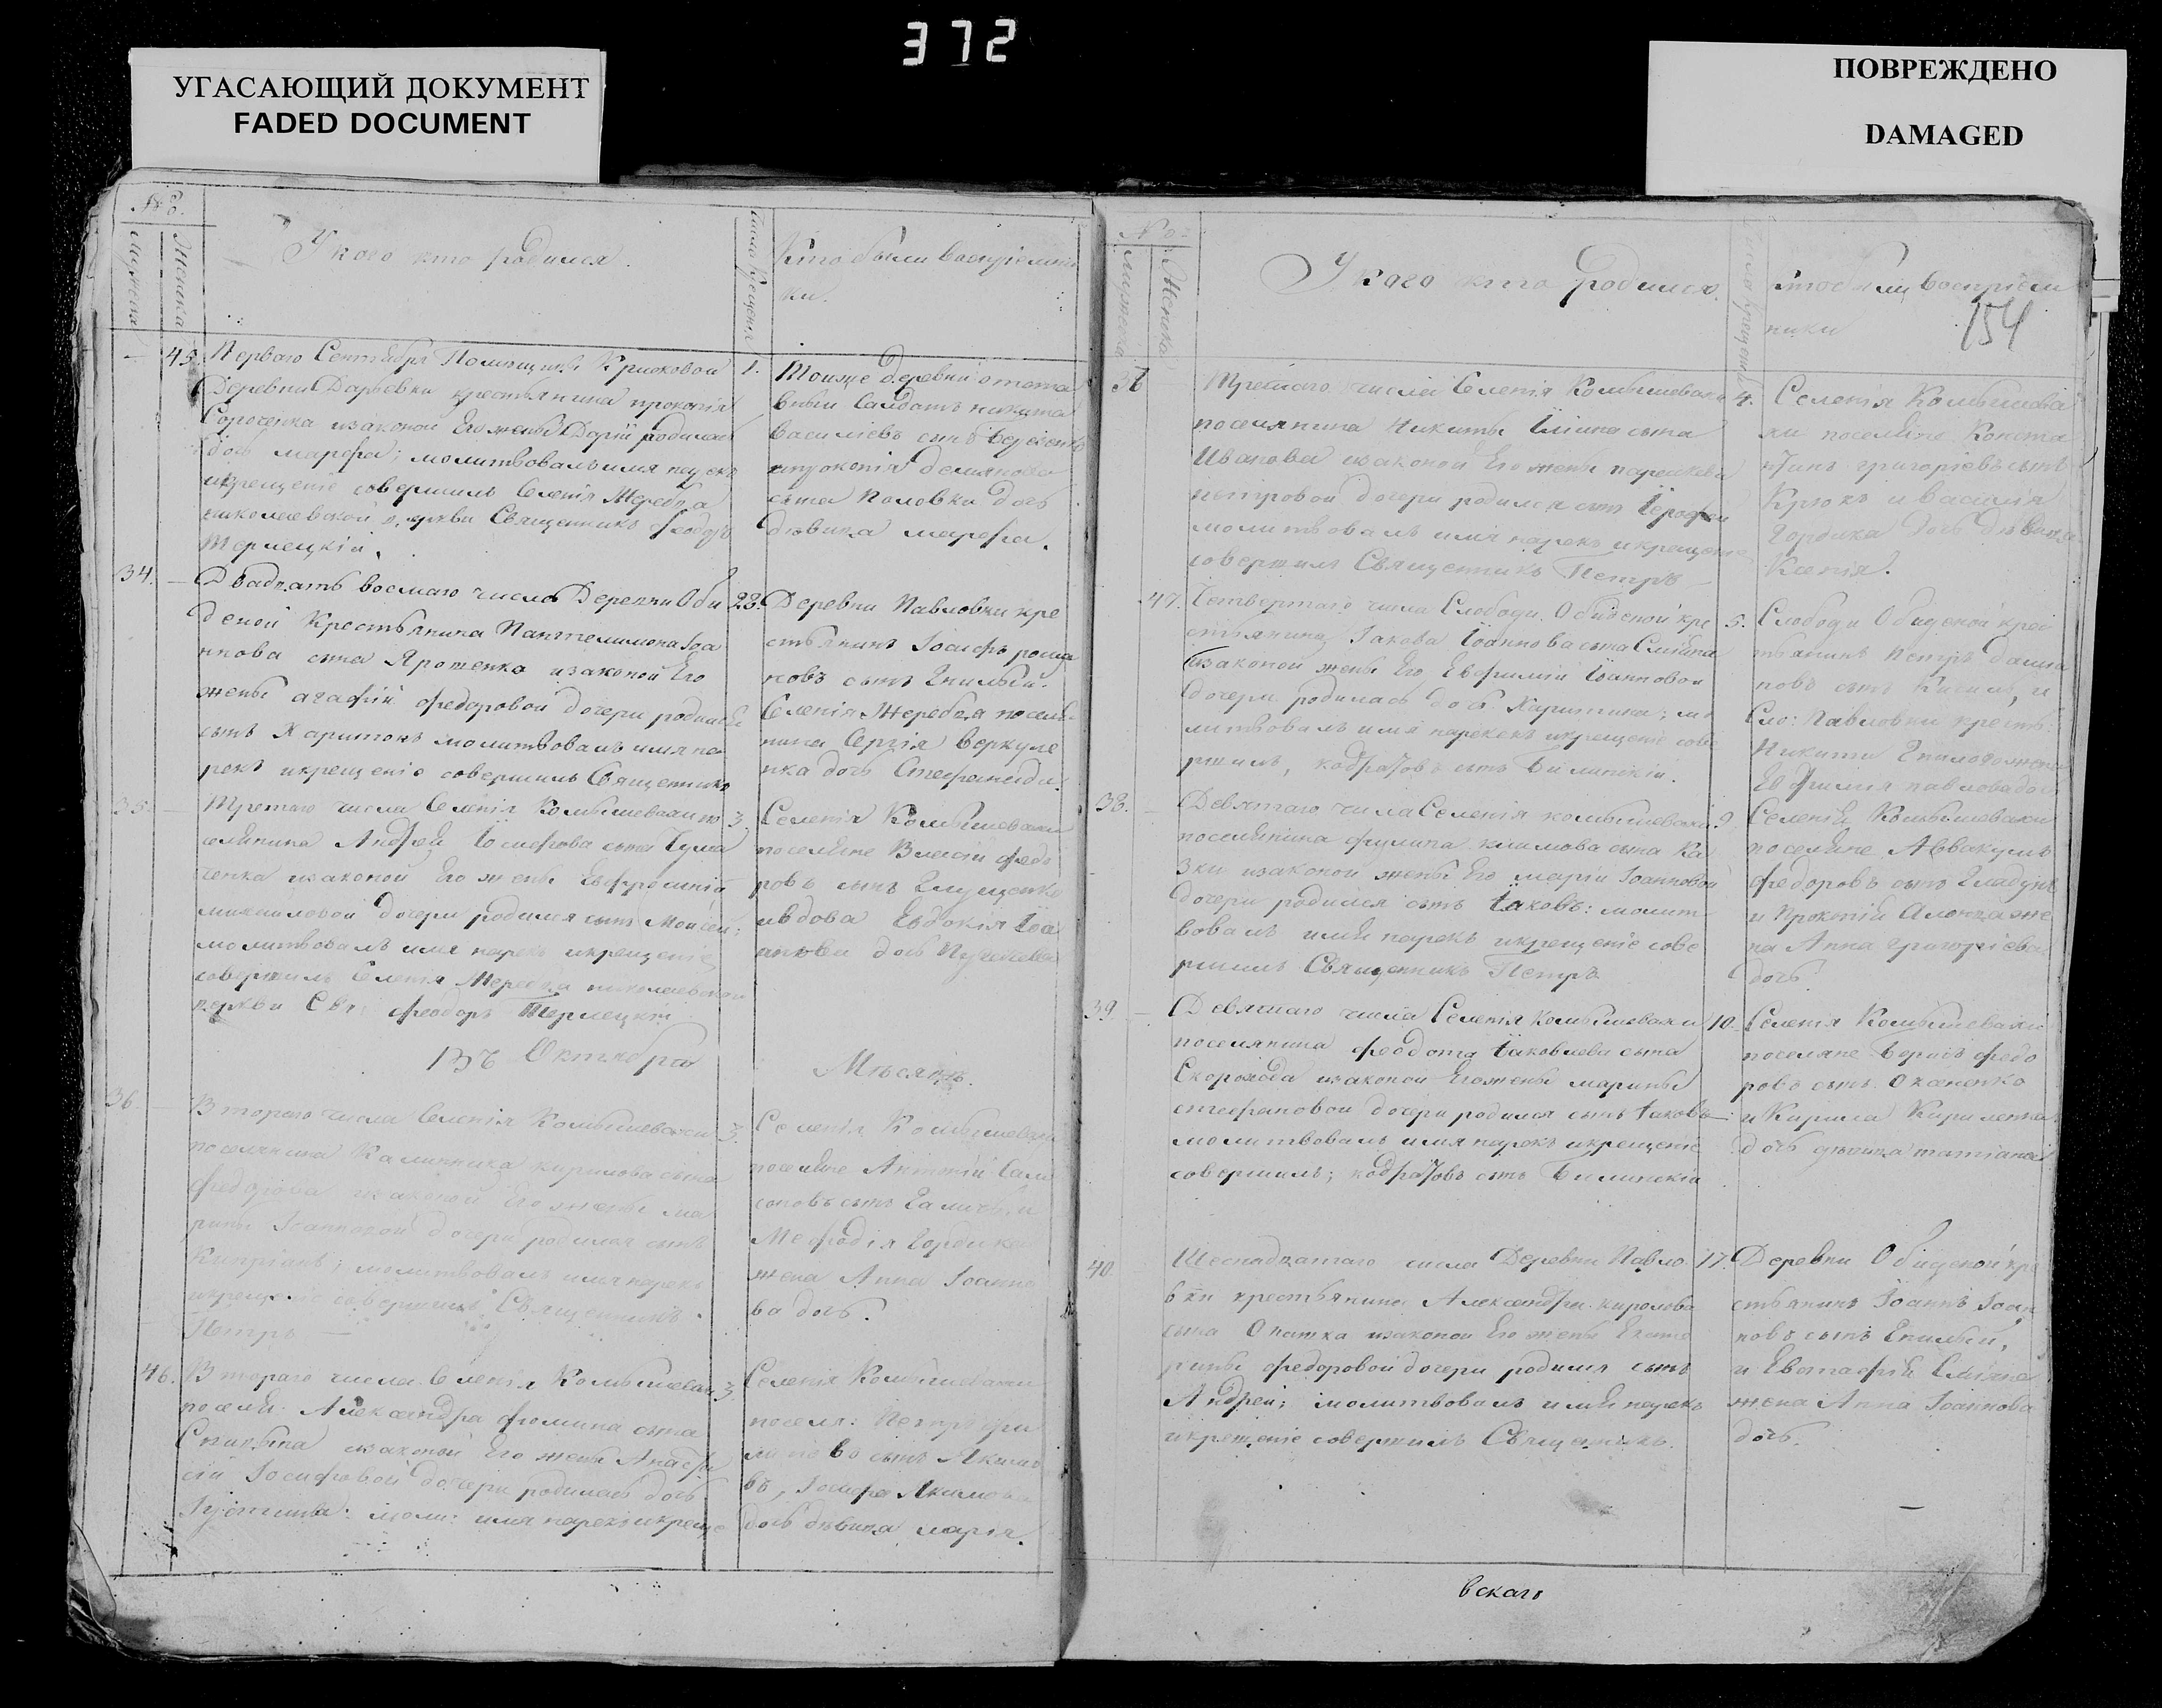 372
УГАСАЮЩИЙ ДОКУМЕНТ
FADED DOCUMENT
ПОВРЕЖДЕНО
DAMAGED
№
Мужеска
Женска
У кого кто родился.
Числа крещенія
Кто были воспріемни
ки.
45.
Перваго Сентября Помѣщицы Крюковой
Деревни Дарьевки крестьянина прокопія
Сороченка изаконой Его жены Даріи родилась
дочь марфа; молитвовалъ имя нарекъ
икрещеніе совершилъ Селенія Жеребца
николаевской церкви Священникъ феодоръ
Терлецкій.
1.
Тоижде деревни отста
вный Салдатъ никита
василіевъ сынъ
ипрокопія демянова
сына Половки дочь
дѣвица марфа.
34.
Двадцать восмаго числа Деревни Оби
деной Крестьянина Пантелимона Іоа
ннова сына Ярошенка изаконой Его
жены агафіи федоровой дочери родился
сынъ Харитонъ молитвовалъ имя на
рекъ икрещеніе совершилъ Священникъ
28.
Деревни Павловки кре
стьянинъ Іосифъ рома
новъ сынъ Гнилый.
Селенія Жеребца поселя
нина Сергія Веркуле
нка дочь Стефанида.
35.
Третяго числа Селенія Комышевахи по
селянина Андрей Іосифова сына
ченка изаконой Его жены Евфросиніи
михайловой дочери родился сынъ Моисей;
молитвовалъ имя нарекъ икрещеніе
совершилъ Селенія Жеребца николаевской
церкви Свя: феодоръ Терлецкій
3.
Селенія Комышевахи
поселяне федо
ровъ сынъ Глущенко
ивдова Евдокія Іоа
ннова дочь
въ Октябрѣ
Мѣсяцѣ.
36.
Втораго числа Селенія Комышевахи
поселянина Калинника кирилова сына
федорова изаконой Его жены ма
рины Іоанновой дочери родился сынъ
Кипріанъ; молитвовалъ имя нарекъ
икрещеніе совершилъ Священникъ
Петръ
3.
Селенія Комышевахи
поселяне Антоній Сам
соновъ сынъ
Мефодія Гордика
жена Анна Іоанно
ва дочь.
46.
Втораго числа Селенія Комышевахи
поселя: Александра фомина сына
изаконой Его жены Анаста
сіи Іосифовой дочери родилась дочь
Іустина: моли: имя нарекъ икреще
3.
Селенія Комышевахи
поселя: Петръ
сынъ
Іосифа Якимова
дочь дѣвица марія.
№
Мужеска
Женска
У кого кто родился.
Кто были воспріем
ники
154
Третяго числа Селенія Комышевахи
поселянина Никиты Ілина сына
Иванова изаконой Его жены параскева
петровой дочери родился сынъ Іерофей
молитвовалъ имя нарекъ икрещеніе
совершилъ Священникъ Петръ
4.
Селенія Комышева
хи поселяне Конста
нтинъ григоріевъ сынъ
Крюкъ и василія
Гордика дочь дѣвица
Ксенія.
47.
Четвертаго числа Слободи Обиденой кре
стьянина Іакова Іоаннова сына
изаконой жены Его Евфиміи Іоанновой
дочери родилась дочь Харитина; мо
литвовалъ имя нарекъ икрещеніе сове
ршилъ, кодратовъ сынъ Билинскій.
5.
Слободи Обиденой крес
тьянинъ Петръ
новъ сынъ и
Сло: Павловки крестья:
Никити Гнилого жена
Евфимія павлова дочь
38.
Девятаго числа Селенія комышевахи
поселянина филипа климова сына Ка
зки изаконой жены Его маріи Іоанновой
дочери родился сынъ Іаковъ: молит
вовалъ имя нарекъ икрещеніе сове
ршилъ Священникъ Петръ
9.
Селенія Комышевахи
поселяне Аввакумъ
федоровъ сынъ Гладунъ
и же
на Анна григоріева
дочь.
39.
Девятаго числа Селенія Комышевахи
поселянина феодота Іаковлева сына
Скорохода изаконой Его жены марины
стефановой дочери родился сынъ Іаковъ
молитвовалъ имя нарекъ икрещеніе
совершилъ; кодратовъ сынъ Билинскій
10.
Селенія Комышевахи
поселяне Борисъ федо
ровъ сынъ
и Кирила Кириленка
дочь дѣвица татіана
40.
Шеснадцатаго числа Деревни Павло
вки крестьянина Александра кирилова
сына Опатка изаконой Его жены Екате
рины федоровой дочери родился сынъ
Андрей; молитвовалъ имя нарекъ
икрещеніе совершилъ Священникъ.
17.
Деревни Обиденой кре
стьянинъ Іоаннъ Іоан
новъ сынъ Гнилый,
и Евстафій
жена Анна Іоаннова
дочь.
вскагъ